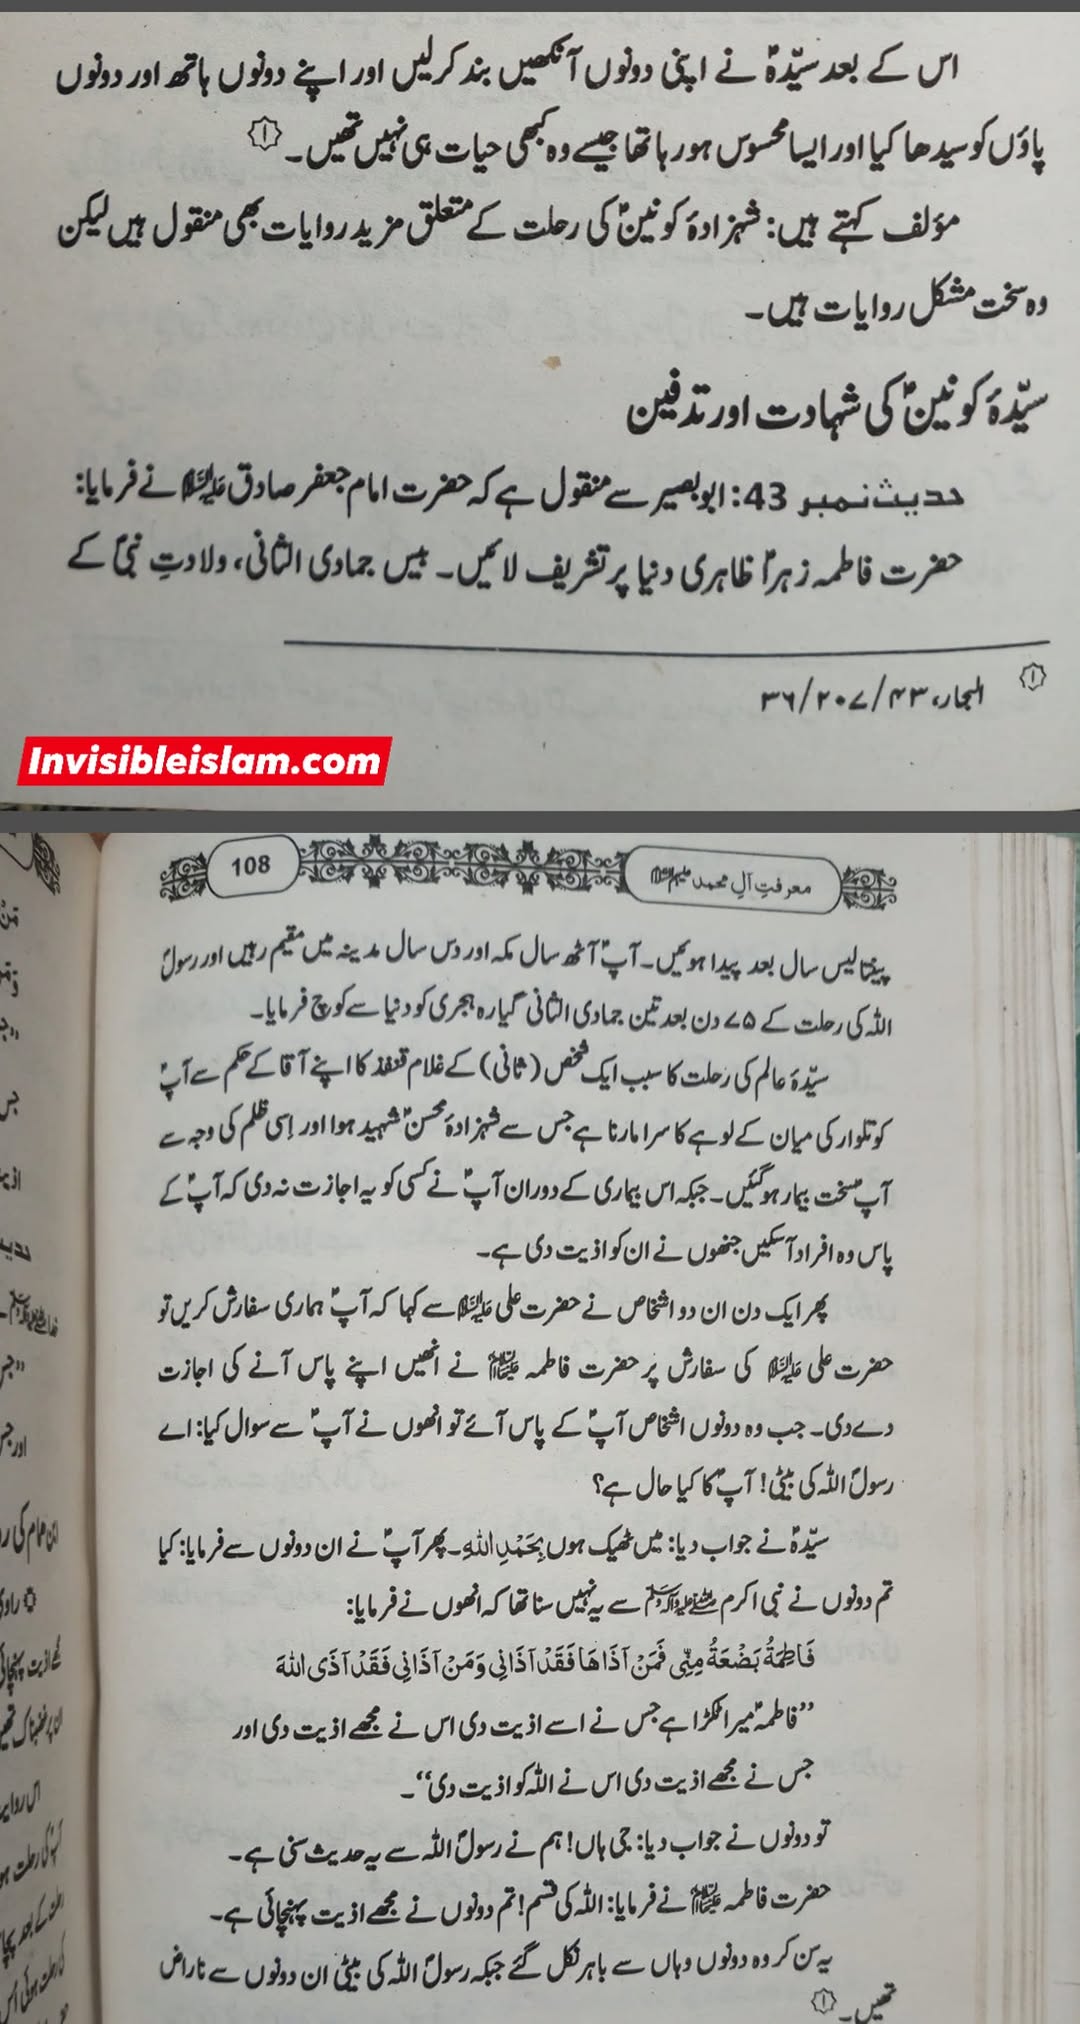 اس کے بعد سیّدہؑ نے اپنی دونوں آنکھیں بند کر لیں اور اپنے دونوں ہاتھ اور دونوں
پاؤں کو سیدھا کیا اور ایسا محسوس ہو رہا تھا جیسے وہ کبھی حیات ہی نہیں تھیں۔ ①
مؤلف کہتے ہیں: شہزادۂ کونینؑ کی رحلت کے متعلق مزید روایات بھی منقول ہیں لیکن
وہ سخت مشکل روایات ہیں۔
سیّدۂ کونینؑ کی شہادت اور تدفین
حدیث نمبر 43: ابوبصیر سے منقول ہے کہ حضرت امام جعفر صادق علیہ السلام نے فرمایا:
حضرت فاطمہ زہراؑ ظاہری دنیا پر تشریف لائیں۔ بیس جمادی الثانی، ولادتِ نبیؐ کے
① البحار، ۴۳/۲۰۷/۳۶
Invisibleislam.com
معرفتِ آلِ محمد علیہم السلام 108
پینتالیس سال بعد پیدا ہوئیں۔ آپؑ آٹھ سال مکہ اور دس سال مدینہ میں مقیم رہیں اور رسولؐ
اللہ کی رحلت کے ۷۵ دن بعد تین جمادی الثانی گیارہ ہجری کو دنیا سے کوچ فرمایا۔
سیّدۂ عالم کی رحلت کا سبب ایک شخص (ثانی) کے غلام قنفذ کا اپنے آقا کے حکم سے آپؑ
کو تلوار کی میان کے لوہے کا سرا مارنا ہے جس سے شہزادۂ محسنؑ شہید ہوا اور اِسی ظلم کی وجہ سے
آپؑ سخت بیمار ہوگئیں۔ جبکہ اس بیماری کے دوران آپؑ نے کسی کو یہ اجازت نہ دی کہ آپؑ کے
پاس وہ افراد آسکیں جنھوں نے ان کو اذیت دی ہے۔
پھر ایک دن ان دو اشخاص نے حضرت علی علیہ السلام سے کہا کہ آپؑ ہماری سفارش کریں تو
حضرت علی علیہ السلام کی سفارش پر حضرت فاطمہ علیہا السلام نے انھیں اپنے پاس آنے کی اجازت
دے دی۔ جب وہ دونوں اشخاص آپؑ کے پاس آئے تو انھوں نے آپؑ سے سوال کیا: اے
رسولؐ اللہ کی بیٹی! آپؑ کا کیا حال ہے؟
سیّدہؑ نے جواب دیا: میں ٹھیک ہوں بِحَمْدِ اللهِ۔ پھر آپؑ نے ان دونوں سے فرمایا: کیا
تم دونوں نے نبی اکرم صلی اللہ علیہ وآلہ وسلم سے یہ نہیں سنا تھا کہ انھوں نے فرمایا:
فَاطِمَةُ بَضْعَةُ مِنِّي فَمَنْ آذَاهَا فَقَدْ آذَانِي وَمَنْ آذَانِي فَقَدْ آذَى اللهَ
”فاطمہؑ میرا ٹکڑا ہے جس نے اسے اذیت دی اس نے مجھے اذیت دی اور
جس نے مجھے اذیت دی اس نے اللہ کو اذیت دی“۔
تو دونوں نے جواب دیا: جی ہاں! ہم نے رسولؐ اللہ سے یہ حدیث سنی ہے۔
حضرت فاطمہ علیہا السلام نے فرمایا: اللہ کی قسم! تم دونوں نے مجھے اذیت پہنچائی ہے۔
یہ سن کر وہ دونوں وہاں سے باہر نکل گئے جبکہ رسولؐ اللہ کی بیٹی ان دونوں سے ناراض
تھیں۔ ①